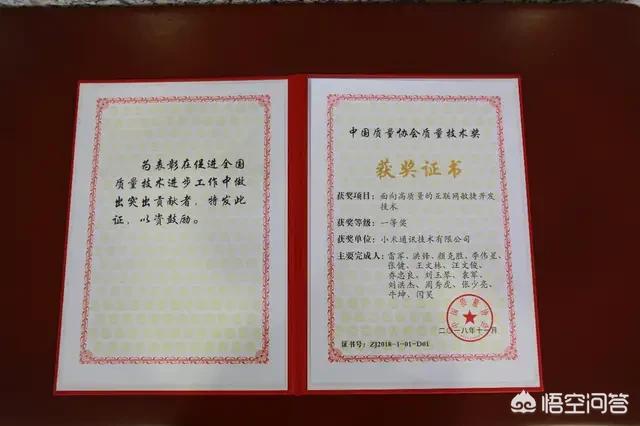 为表彰在促进全国
质量技术进步工作中做
出突出贡献者，特发此
证，以资鼓励。
中国质量协会质量技术奖
获奖证书
获奖项目：面向高质量的互联网敏捷开发
技术
获奖等级：一等奖
获奖单位：小米通讯技术有限公司
主要完成人：雷军、洪锋、颜克胜、李伟星、
张健、王文林、汪文俊、
乔忠良、刘玉翠、袁军、
刘洪杰、周秀虎、张少亮、
牛坤、闫昊
二〇一八年十一月
证书号：ZJ2018-1-01-D01
悟空问答